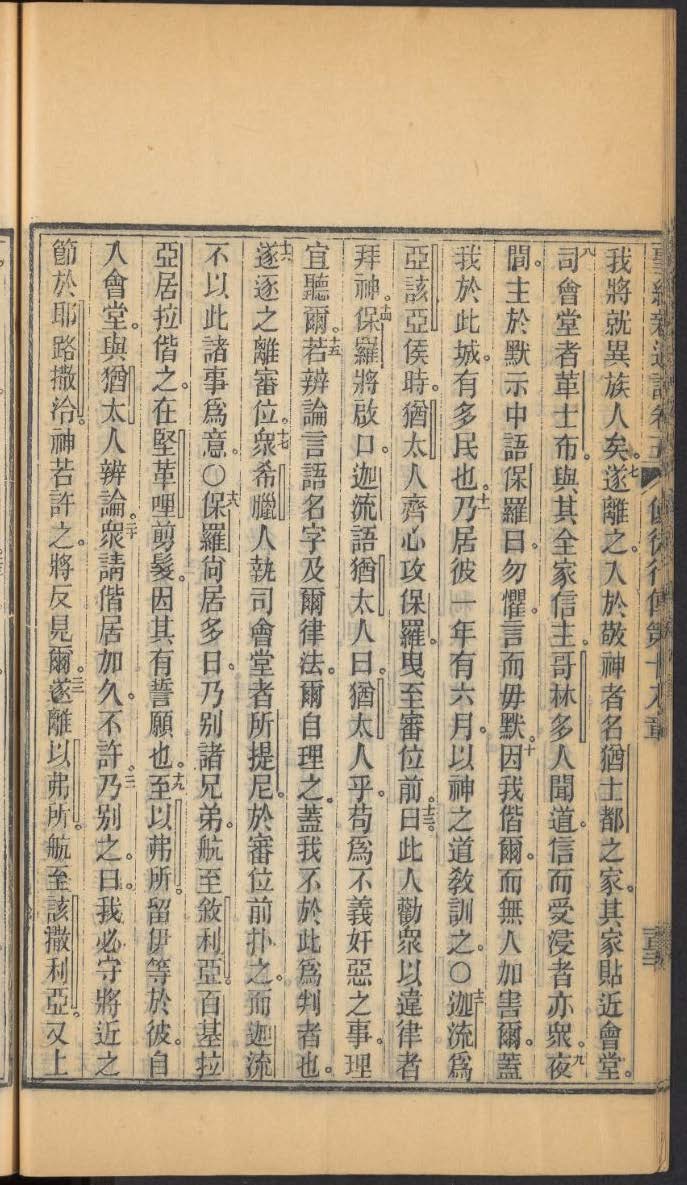 聖經新遺詔卷五 使徒行傳第十八章
我將就異族人矣。七遂離之。入於敬神者名猶士都之家。其家貼近會堂。
八司會堂者革士布。與其全家信主。哥林多人聞道。信而受浸者亦衆。九夜
間。主於默示中語保羅曰。勿懼。言而毋默。十因我偕爾。而無人加害爾。蓋
我於此城。有多民也。十一乃居彼一年有六月。以神之道敎訓之。〇十二迦流爲
亞該亞侯時。猶太人齊心攻保羅。曳至審位前。十三曰。此人勸衆以違律者
拜神。十四保羅將啟口。迦流語猶太人曰。猶太人乎。苟爲不義奸惡之事。理
宜聽爾。十五若辨論言語名字及爾律法。爾自理之。蓋我不於此爲判者也。
十六遂逐之離審位。十七衆希臘人執司會堂者所提尼。於審位前扑之。而迦流
不以此諸事爲意。〇十八保羅尙居多日。乃别諸兄弟。航至敘利亞。百基拉
亞居拉偕之。在堅革哩剪髮。因其有誓願也。十九至以弗所。留伊等於彼。自
入會堂。與猶太人辨論。二十衆請偕居加久。不許。二一乃别之。曰。我必守將近之
節於耶路撒冷。神若許之。將反見爾。遂離以弗所。二二航至該撒利亞。又上